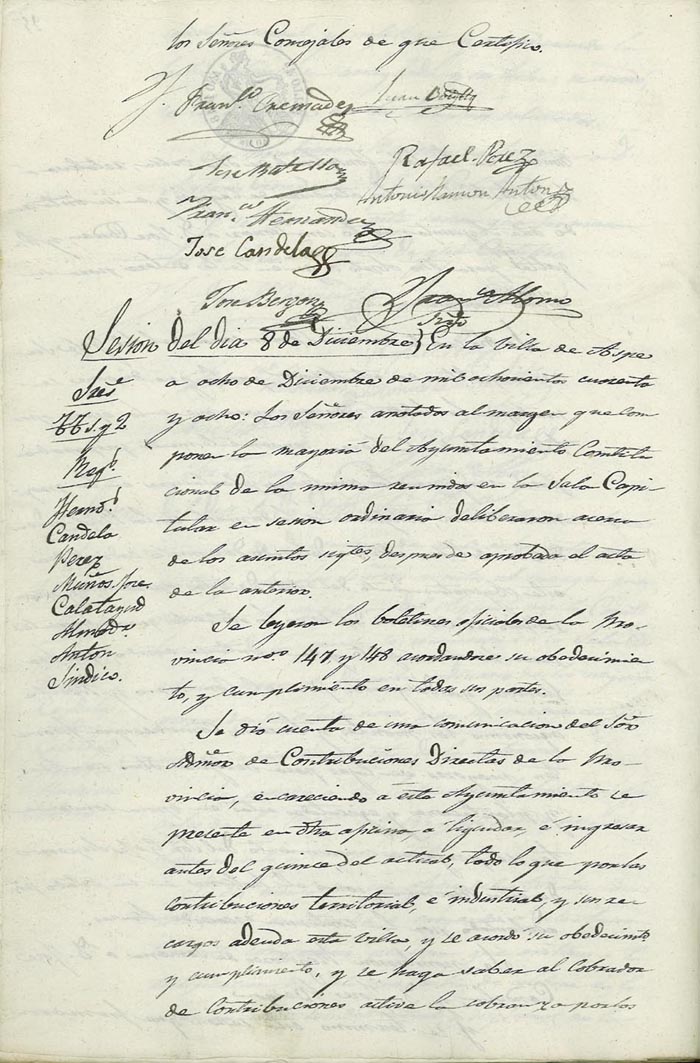 los Señores Concejales de que Certifico.
Franco. Cremades Juan
José Batalla Rafael Perez
Franco. Hernandez Antonio Ramon Anton
Jose Candela
Jose Bergon Franco. Alonso
Srio
Sesion del dia 8 de Diciembre) En la Villa de Aspe
a ocho de Diciembre de mil ochocientos cuarenta
y ocho: Los Señores anotados al margen que com
ponen la mayoria del Ayuntamiento Constitu
cional de la misma reunidos en la Sala Capi-
tular en sesion ordinaria deliberaron acerca
de los asuntos sigtes, despues de aprobada el acta
de la anterior.
Sres
1 y 2
Regs
Hernz
Candela
Perez
Muñoz Jose
Calatayud
Almodr
Anton
Sindico.
Se leyeron los boletines oficiales de la Pro-
vincia nos. 147 y 148 acordandose su obedecimien
to, y cumplimiento en todas sus partes.
Se dió cuenta de una comunicacion del Sor
Admor de Contribuciones Directas de la Pro-
vincia, encareciendo á este Ayuntamiento se
presente en dha oficina, a liquidar, é ingresar
antes del quince del actual, todo lo que por las
contribuciones territorial, é industrial, y sus re-
cargos adeuda esta villa, y se acordó su obedecimto
y cumplimiento, y se haga saber al Cobrador
de Contribuciones active la cobranza por los